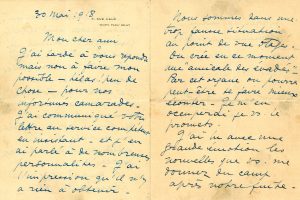 30 mai 1918
Mon cher ami
J'ai tardé à vous répondre
mais non à faire mon
possible – hélas ! peu de
chose – pour nos
infortunés camarades.
J'ai communiqué votre
lettre au service compétent
en insistant – et j'en
ai parlé à de nombreuses
personnalités. J'ai
l'impression qu'il n'y
a rien à obtenir.
Nous sommes dans une
trop fausse situation
au point de vue
On crée en ce moment
une amicale des évadés.
Par cet organe on pourra
peut-être se faire mieux
écouter. Je m'en
occuperai je vs. le
promets.
J'ai lu avec une
grande émotion les
nouvelles que vs. me
donnez du camp
après notre fuite.